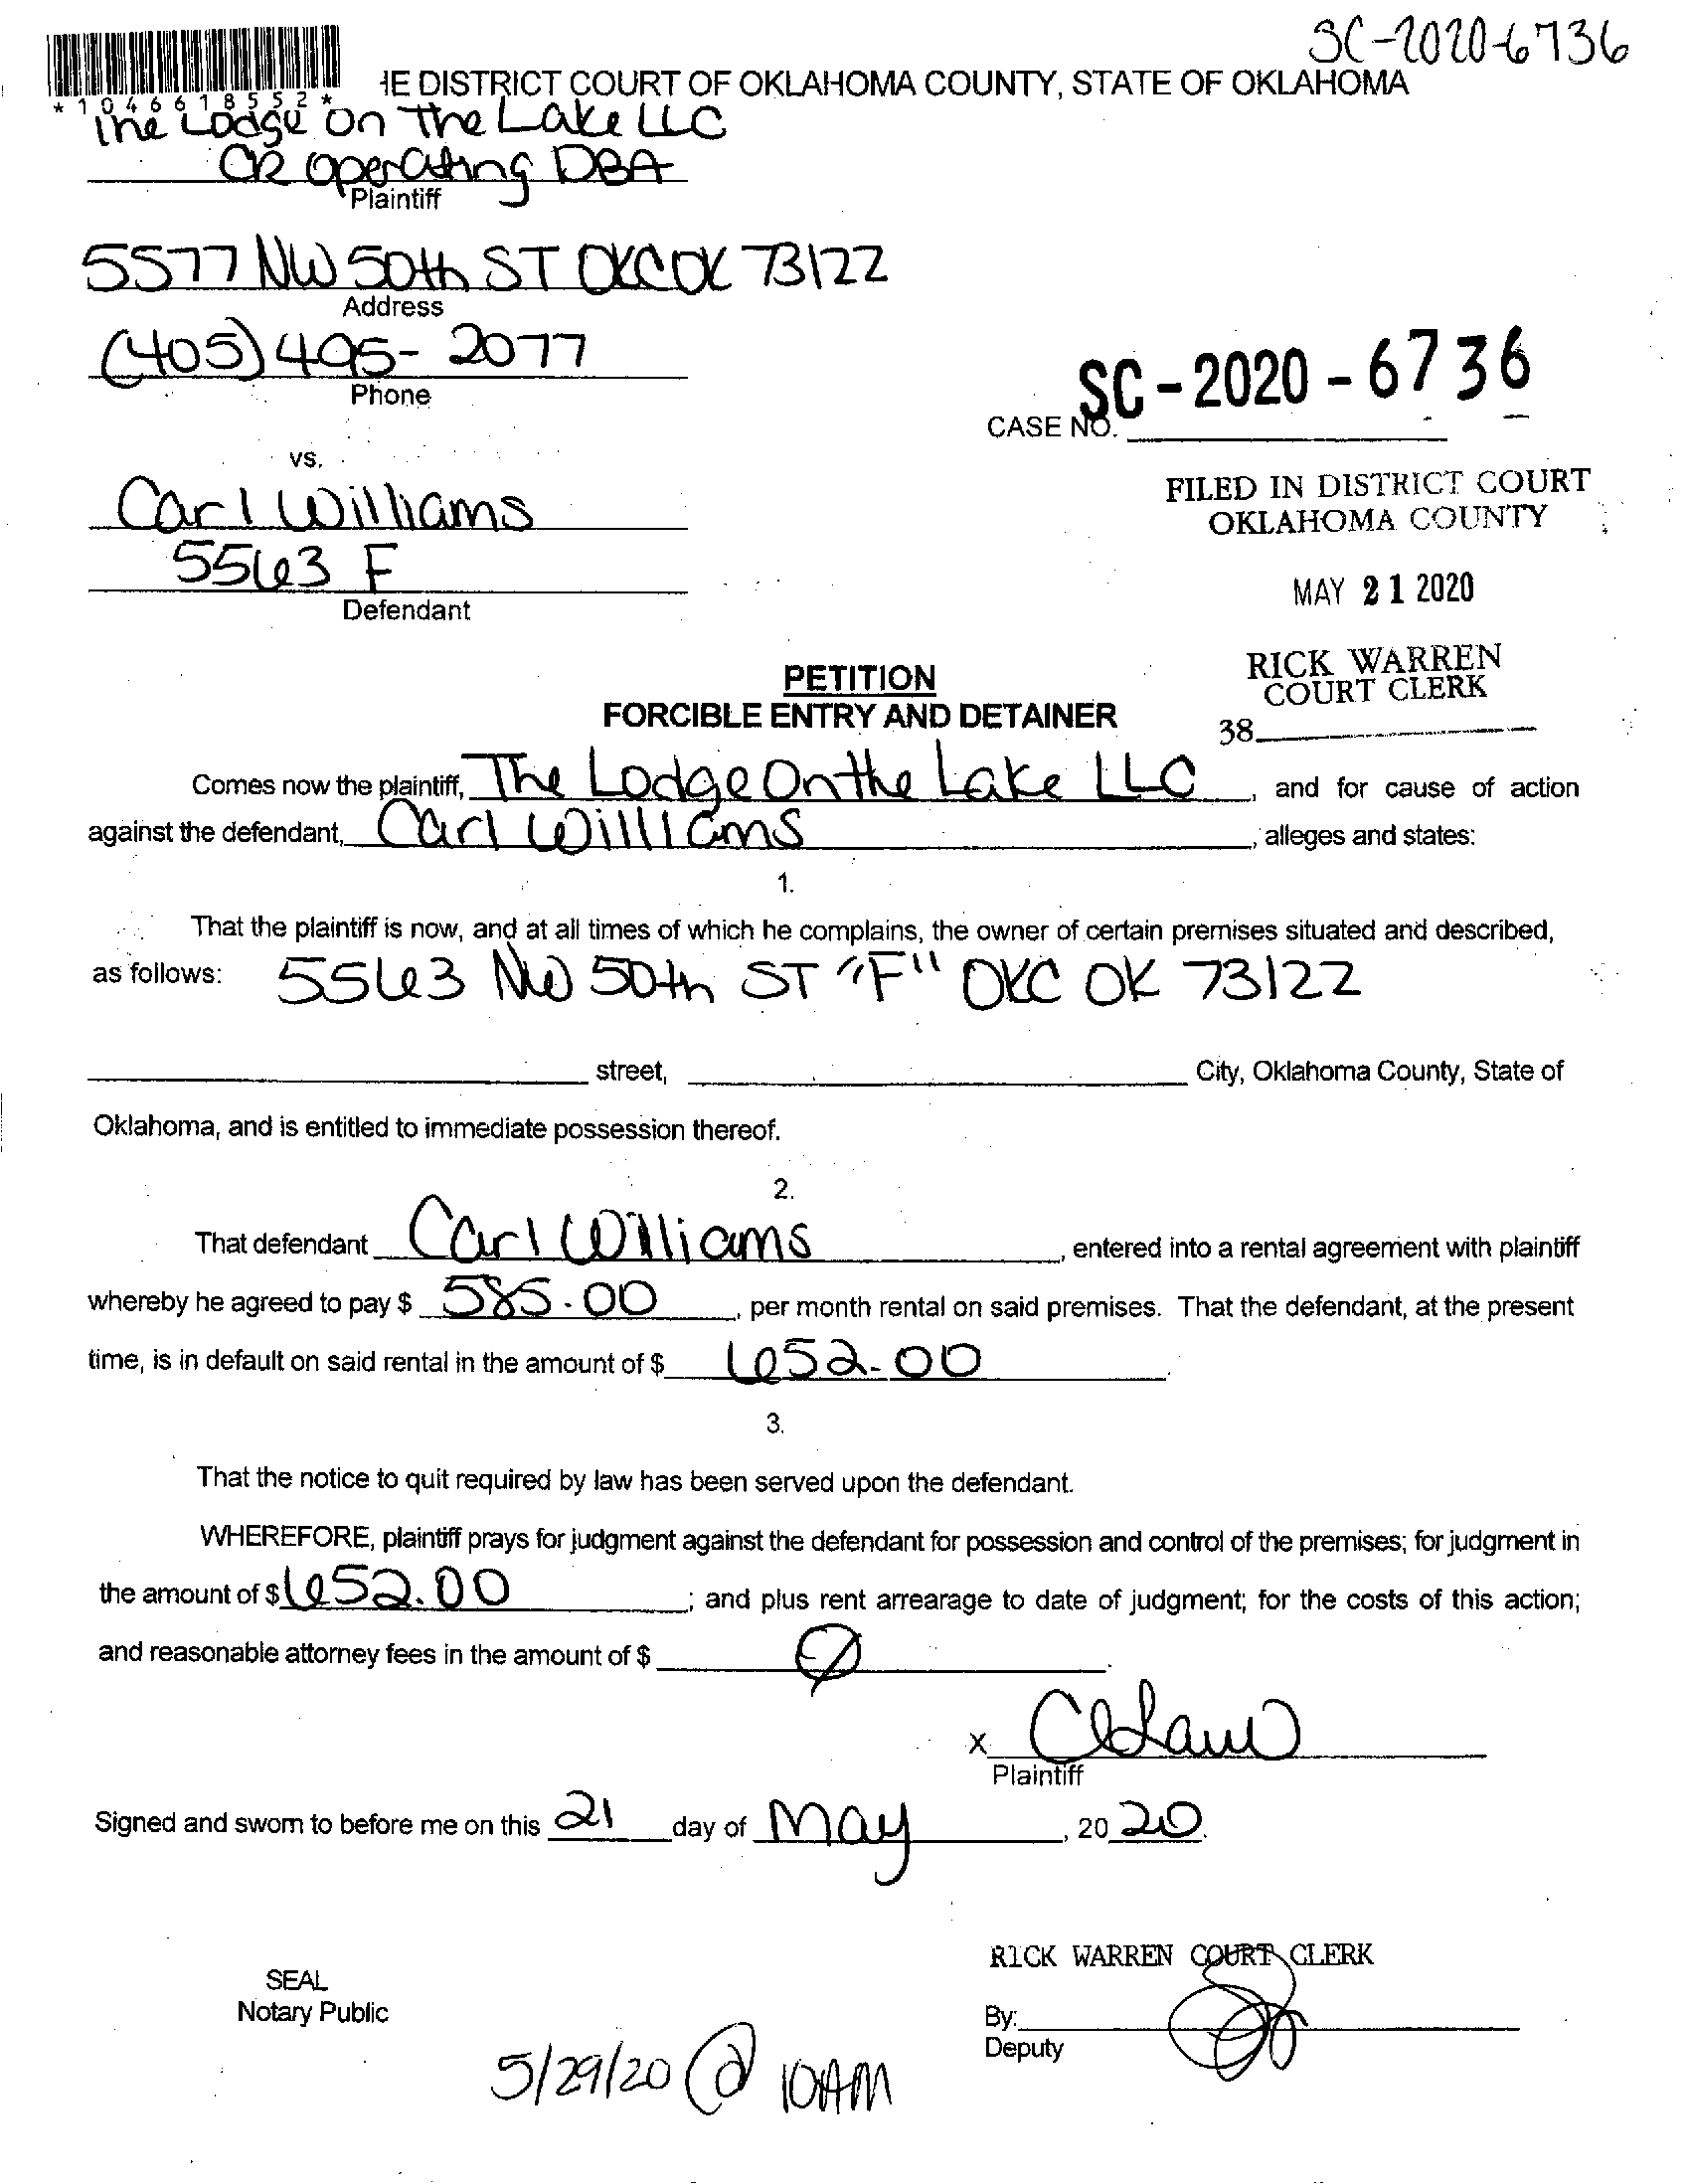 SC-2020-6736
*1046618552*
HE DISTRICT COURT OF OKLAHOMA COUNTY, STATE OF OKLAHOMA
The Lodge On The Lake LLC
CR Operating DBA
Plaintiff
5577 NW 50th ST OKC OK 73122
Address
(405) 495-2077
Phone
SC-2020-6736
CASE NO.
vs.
Carl Williams
5563 F
Defendant
FILED IN DISTRICT COURT
OKLAHOMA COUNTY
MAY 21 2020
RICK WARREN
COURT CLERK
38
PETITION
FORCIBLE ENTRY AND DETAINER
Comes now the plaintiff, The Lodge On the Lake LLC, and for cause of action
against the defendant, Carl Williams, alleges and states:
1.
That the plaintiff is now, and at all times of which he complains, the owner of certain premises situated and described,
as follows: 5563 NW 50th ST "F" OKC OK 73122
street, City, Oklahoma County, State of
Oklahoma, and is entitled to immediate possession thereof.
2.
That defendant Carl Williams, entered into a rental agreement with plaintiff
whereby he agreed to pay $ 585.00, per month rental on said premises. That the defendant, at the present
time, is in default on said rental in the amount of $ 652.00
3.
That the notice to quit required by law has been served upon the defendant.
WHEREFORE, plaintiff prays for judgment against the defendant for possession and control of the premises; for judgment in
the amount of $ 652.00; and plus rent arrearage to date of judgment; for the costs of this action;
and reasonable attorney fees in the amount of $ Ø
X
Plaintiff
Signed and sworn to before me on this 21 day of May, 20 20.
RICK WARREN COURT CLERK
SEAL
Notary Public
By:
Deputy
5/29/20 @ 10AM